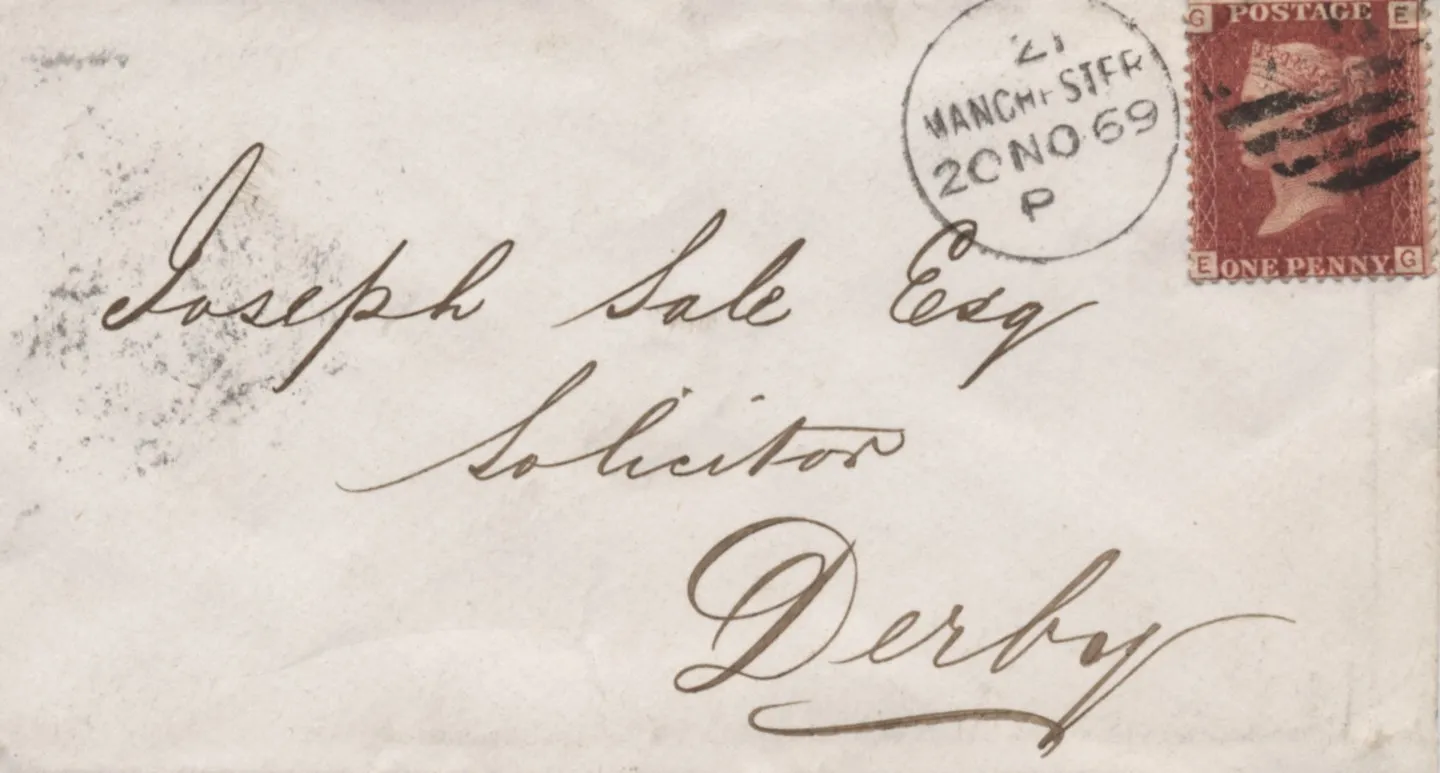 21
MANCHESTER
20 NO 69
P
G POSTAGE E
E ONE PENNY G
Joseph Sale Esq
Solicitor
Derby